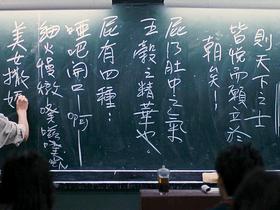 則天下之士
皆悅而願立於
朝矣!
屁乃肚中之氣
五穀之精華也
屁有四種:
啞吧開口—啊
細火慢
美女撒嬌